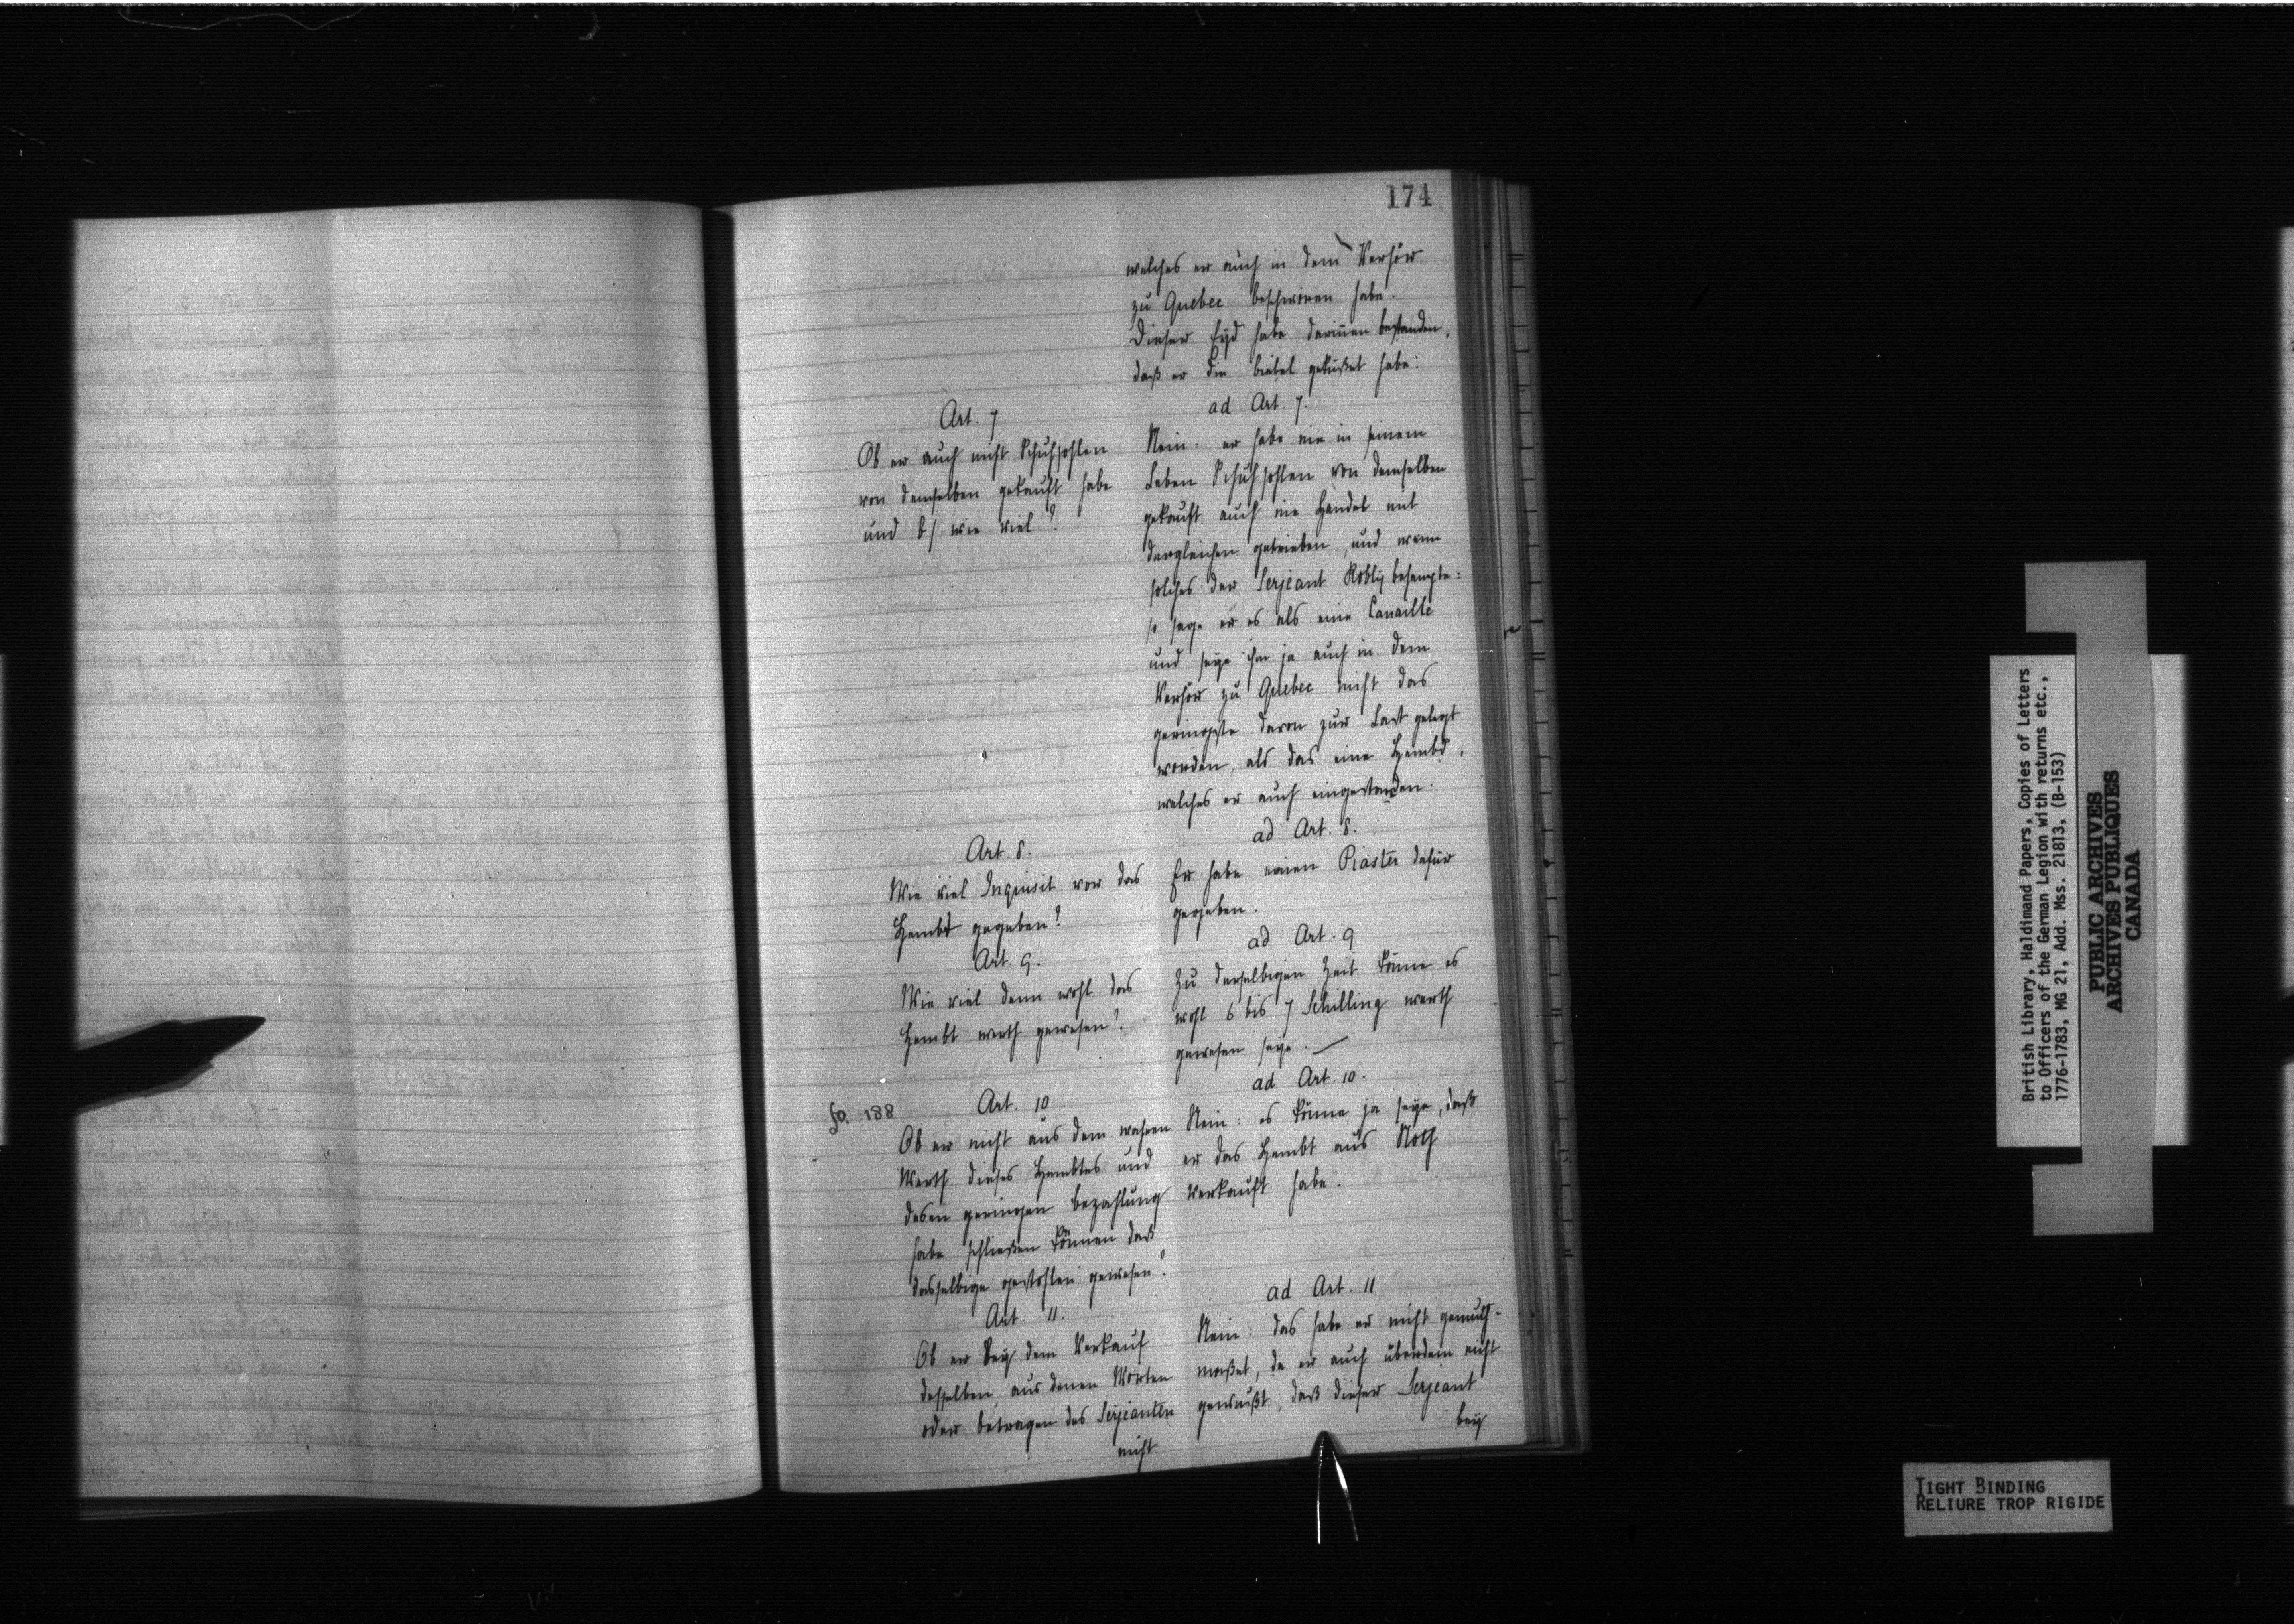 174
welches er auch in dem Verhör
zu Quebec beschworen habe.
Dieser Eyd habe darinnen bestanden,
daß er die biebel geküßet habe:
Art. 7
Ob er auch nicht Schuhsohlen
von demselben gekauft habe
und b/ wie viel?
ad Art. 7.
Nein: er habe nie in seinem
Leben Schuhsohlen von demselben
gekauft auch nie Handel mit
dergleichen getrieben, und wenn
solches der Serjeant behaupte:
so sage er es als eine Canaille
und seye ihm ja auch in dem
Verhör zu Quebec nicht das
geringste davon zur Last gelegt
worden, als das eine Hembd,
welches er auch eingestanden.
Art. 8.
Wie viel Inquisit vor das
Hembt gegeben?
ad Art. 8.
Er habe einen Piaster dafür
gegeben.
Art. 9.
Wie viel denn wohl das
Hembt werth gewesen?
ad Art. 9
Zu derselbigen Zeit könne es
wohl 6 bis 7 Schilling werth
gewesen seye.
fo. 188
Art. 10
Ob er nicht aus dem wahren
Werth dieses Hembtes und
desen geringen bezahlung
habe schließen können daß
dasselbige gestohlen gewesen?
ad Art. 10.
Nein: es könne ja seye, daß
er das Hembt aus Noth
verkauft habe.
Art. 11.
Ob er bey dem Verkauf
desselben, aus denen Worten
oder betragen des Serjeanten
nicht
ad Art. 11
Nein: das habe er nicht gemuth-
maßet, da er auch überdem nicht
gewußt, daß dieser Serjeant
bey
British Library, Haldimand Papers, Copies of Letters
to Officers of the German Legion with returns etc.,
1776-1783, MG 21, Add. Mss. 21813, (B-153)
PUBLIC ARCHIVES
ARCHIVES PUBLIQUES
CANADA
TIGHT BINDING
RELIURE TROP RIGIDE